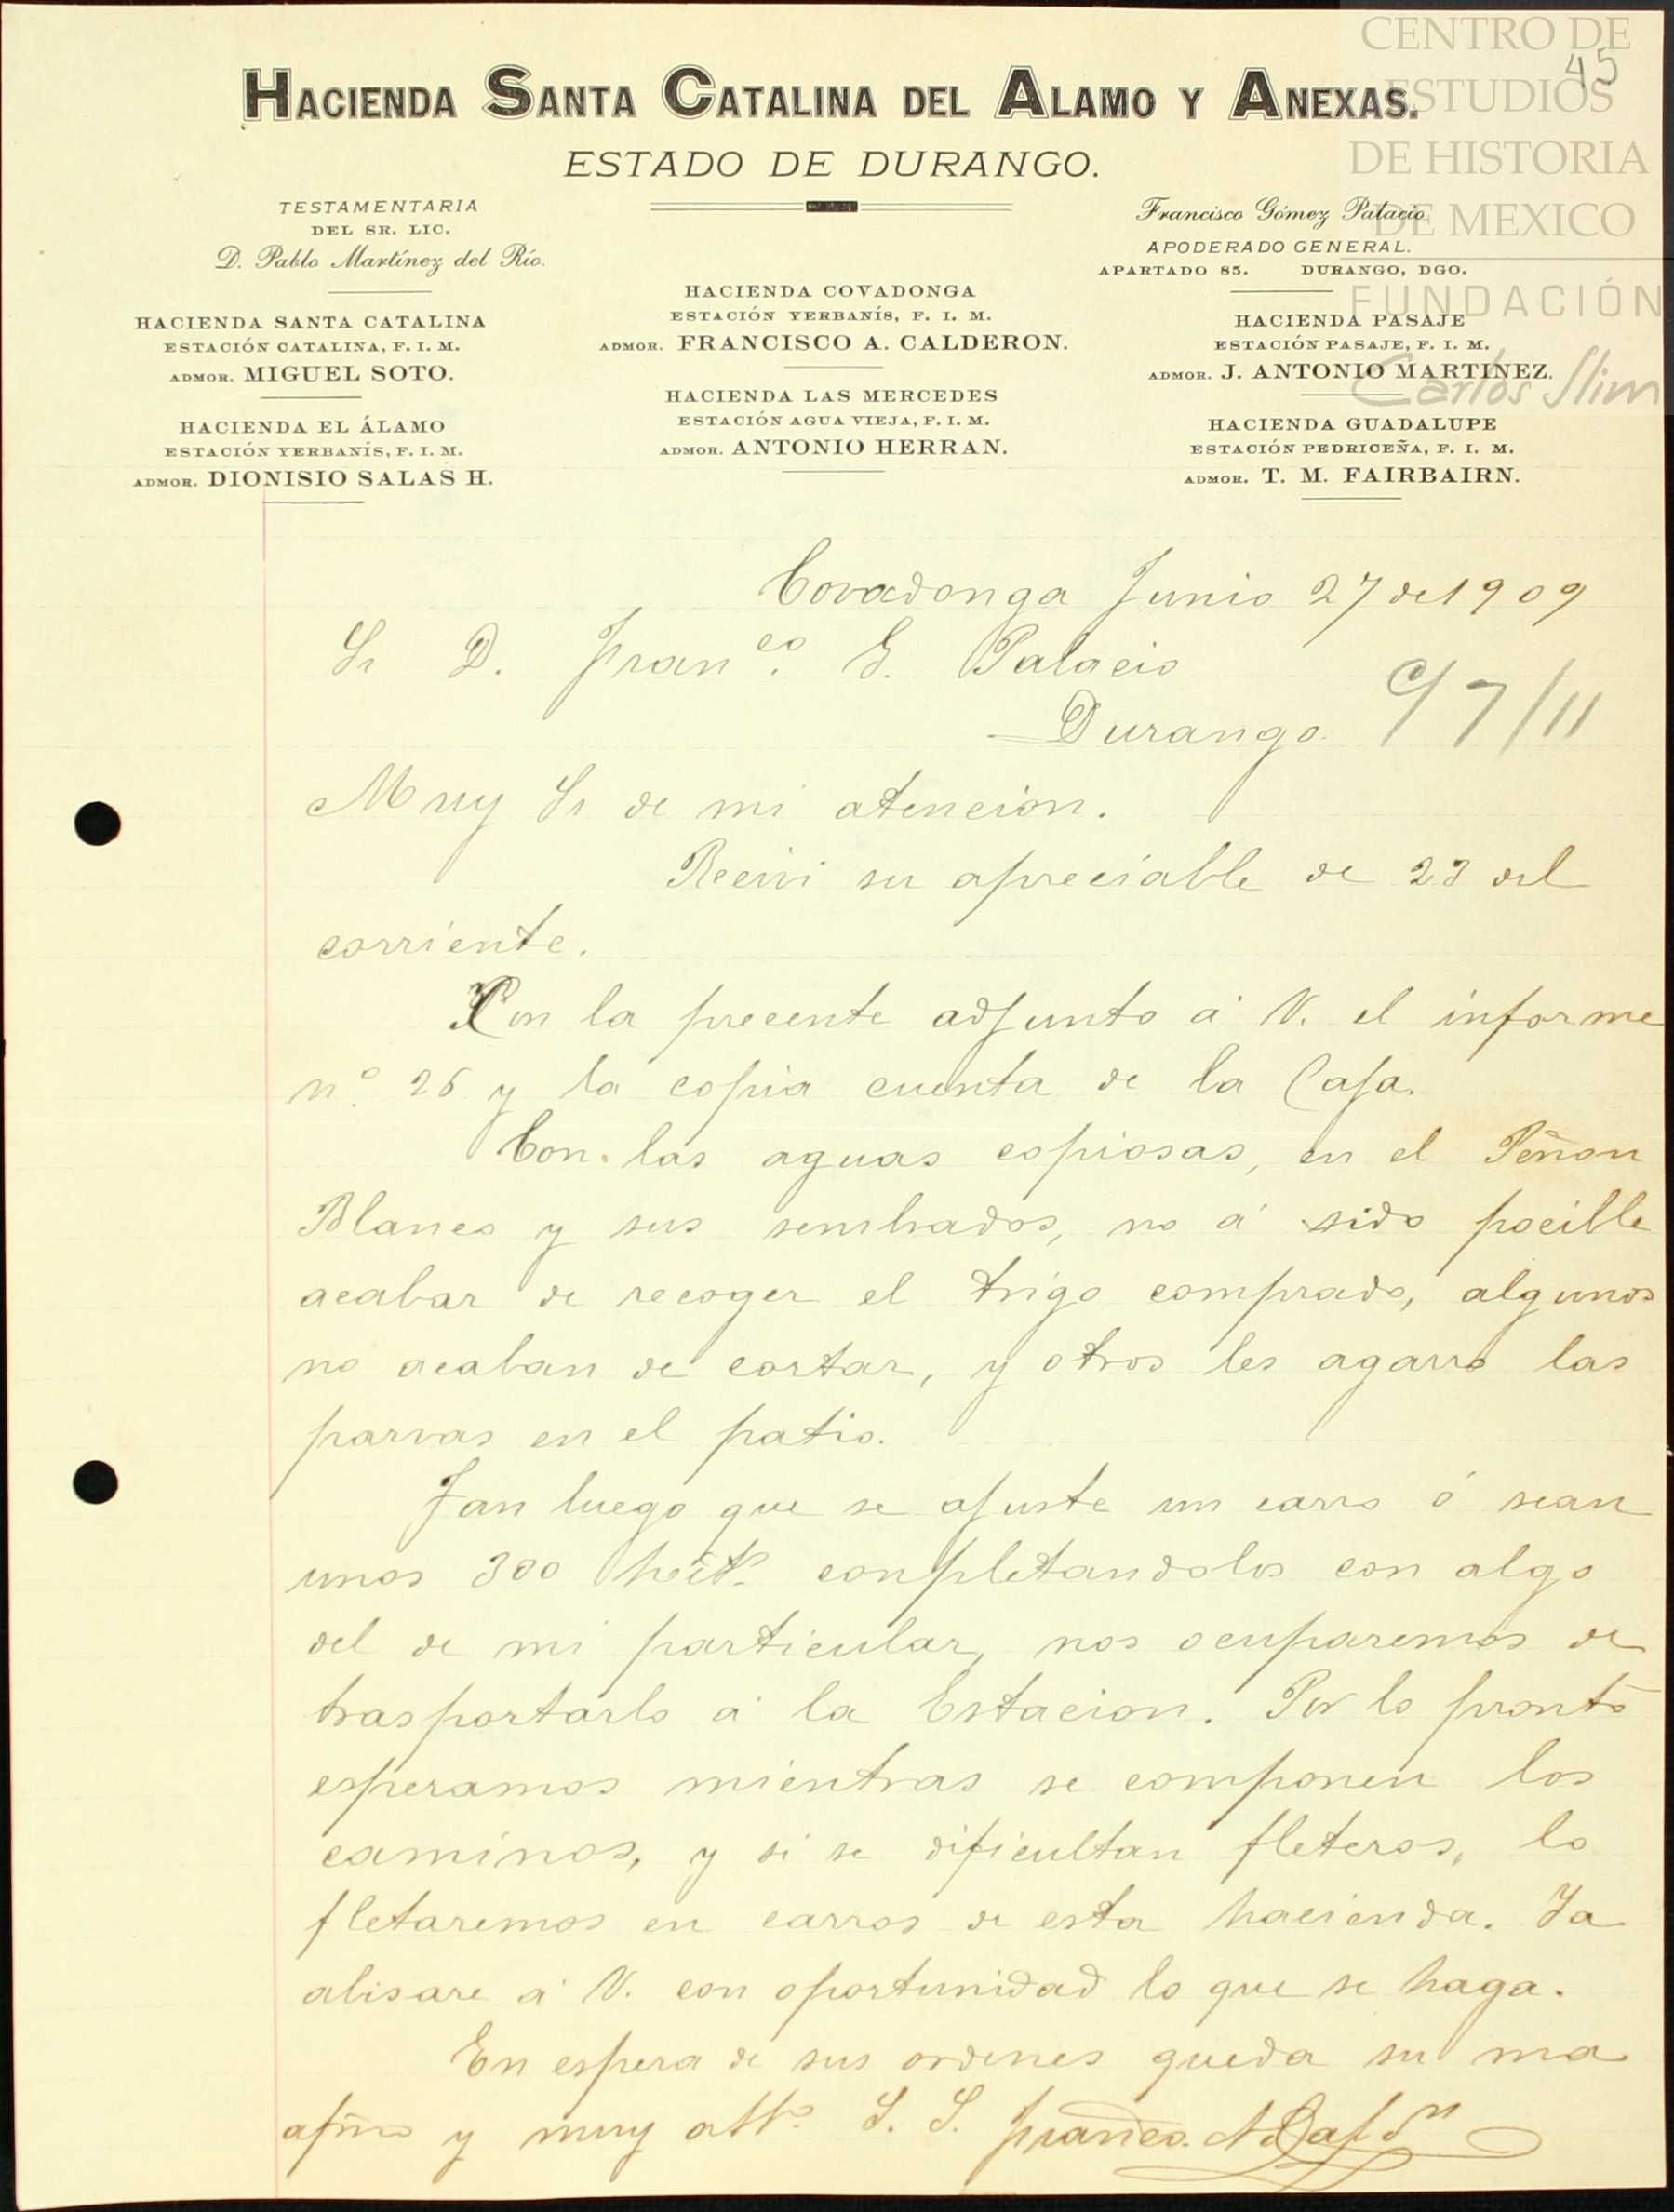 CENTRO DE
ESTUDIOS
DE HISTORIA
DE MEXICO
FUNDACIÓN
Carlos Slim
45
HACIENDA SANTA CATALINA DEL ALAMO Y ANEXAS.
ESTADO DE DURANGO.
TESTAMENTARIA
DEL SR. LIC.
D. Pablo Martínez del Río.
HACIENDA SANTA CATALINA
ESTACIÓN CATALINA, F. I. M.
ADMOR. MIGUEL SOTO.
HACIENDA EL ÁLAMO
ESTACIÓN YERBANÍS, F. I. M.
ADMOR. DIONISIO SALAS H.
HACIENDA COVADONGA
ESTACIÓN YERBANÍS, F. I. M.
ADMOR. FRANCISCO A. CALDERON.
HACIENDA LAS MERCEDES
ESTACIÓN AGUA VIEJA, F. I. M.
ADMOR. ANTONIO HERRAN.
Francisco Gómez Palacio
APODERADO GENERAL.
APARTADO 85. DURANGO, DGO.
HACIENDA PASAJE
ESTACIÓN PASAJE, F. I. M.
ADMOR. J. ANTONIO MARTINEZ.
HACIENDA GUADALUPE
ESTACIÓN PEDRICEÑA, F. I. M.
ADMOR. T. M. FAIRBAIRN.
Covadonga Junio 27 de 1909
Sr D. Franco. G. Palacio
Durango. C/ 7/11
Muy Sr de mi atencion.
Recivi su apreciable de 23 del
corriente.
Con la precente adjunto á V. el informe
no. 26 y la copia cuenta de la Casa.
Con las aguas copiosas, en el Peñon
Blanco y sus sembrados, no á sido pocible
acabar de recoger el trigo comprado, algunos
no acaban de cortar, y otros les agarro las
parvas en el patio.
Tan luego que se ajuste un carro ó sean
unos 300 hects. conpletandolos con algo
del de mi particular, nos ocuparemos de
trasportarlo á la Estacion. Por lo pronto
esperamos mientras se componen los
caminos, y si se dificultan fleteros, lo
fletaremos en carros de esta hacienda. Ya
abisare á V. con oportunidad lo que se haga.
En espera de sus ordenes queda su mа
afmo y muy atto. S. S. Franco. A